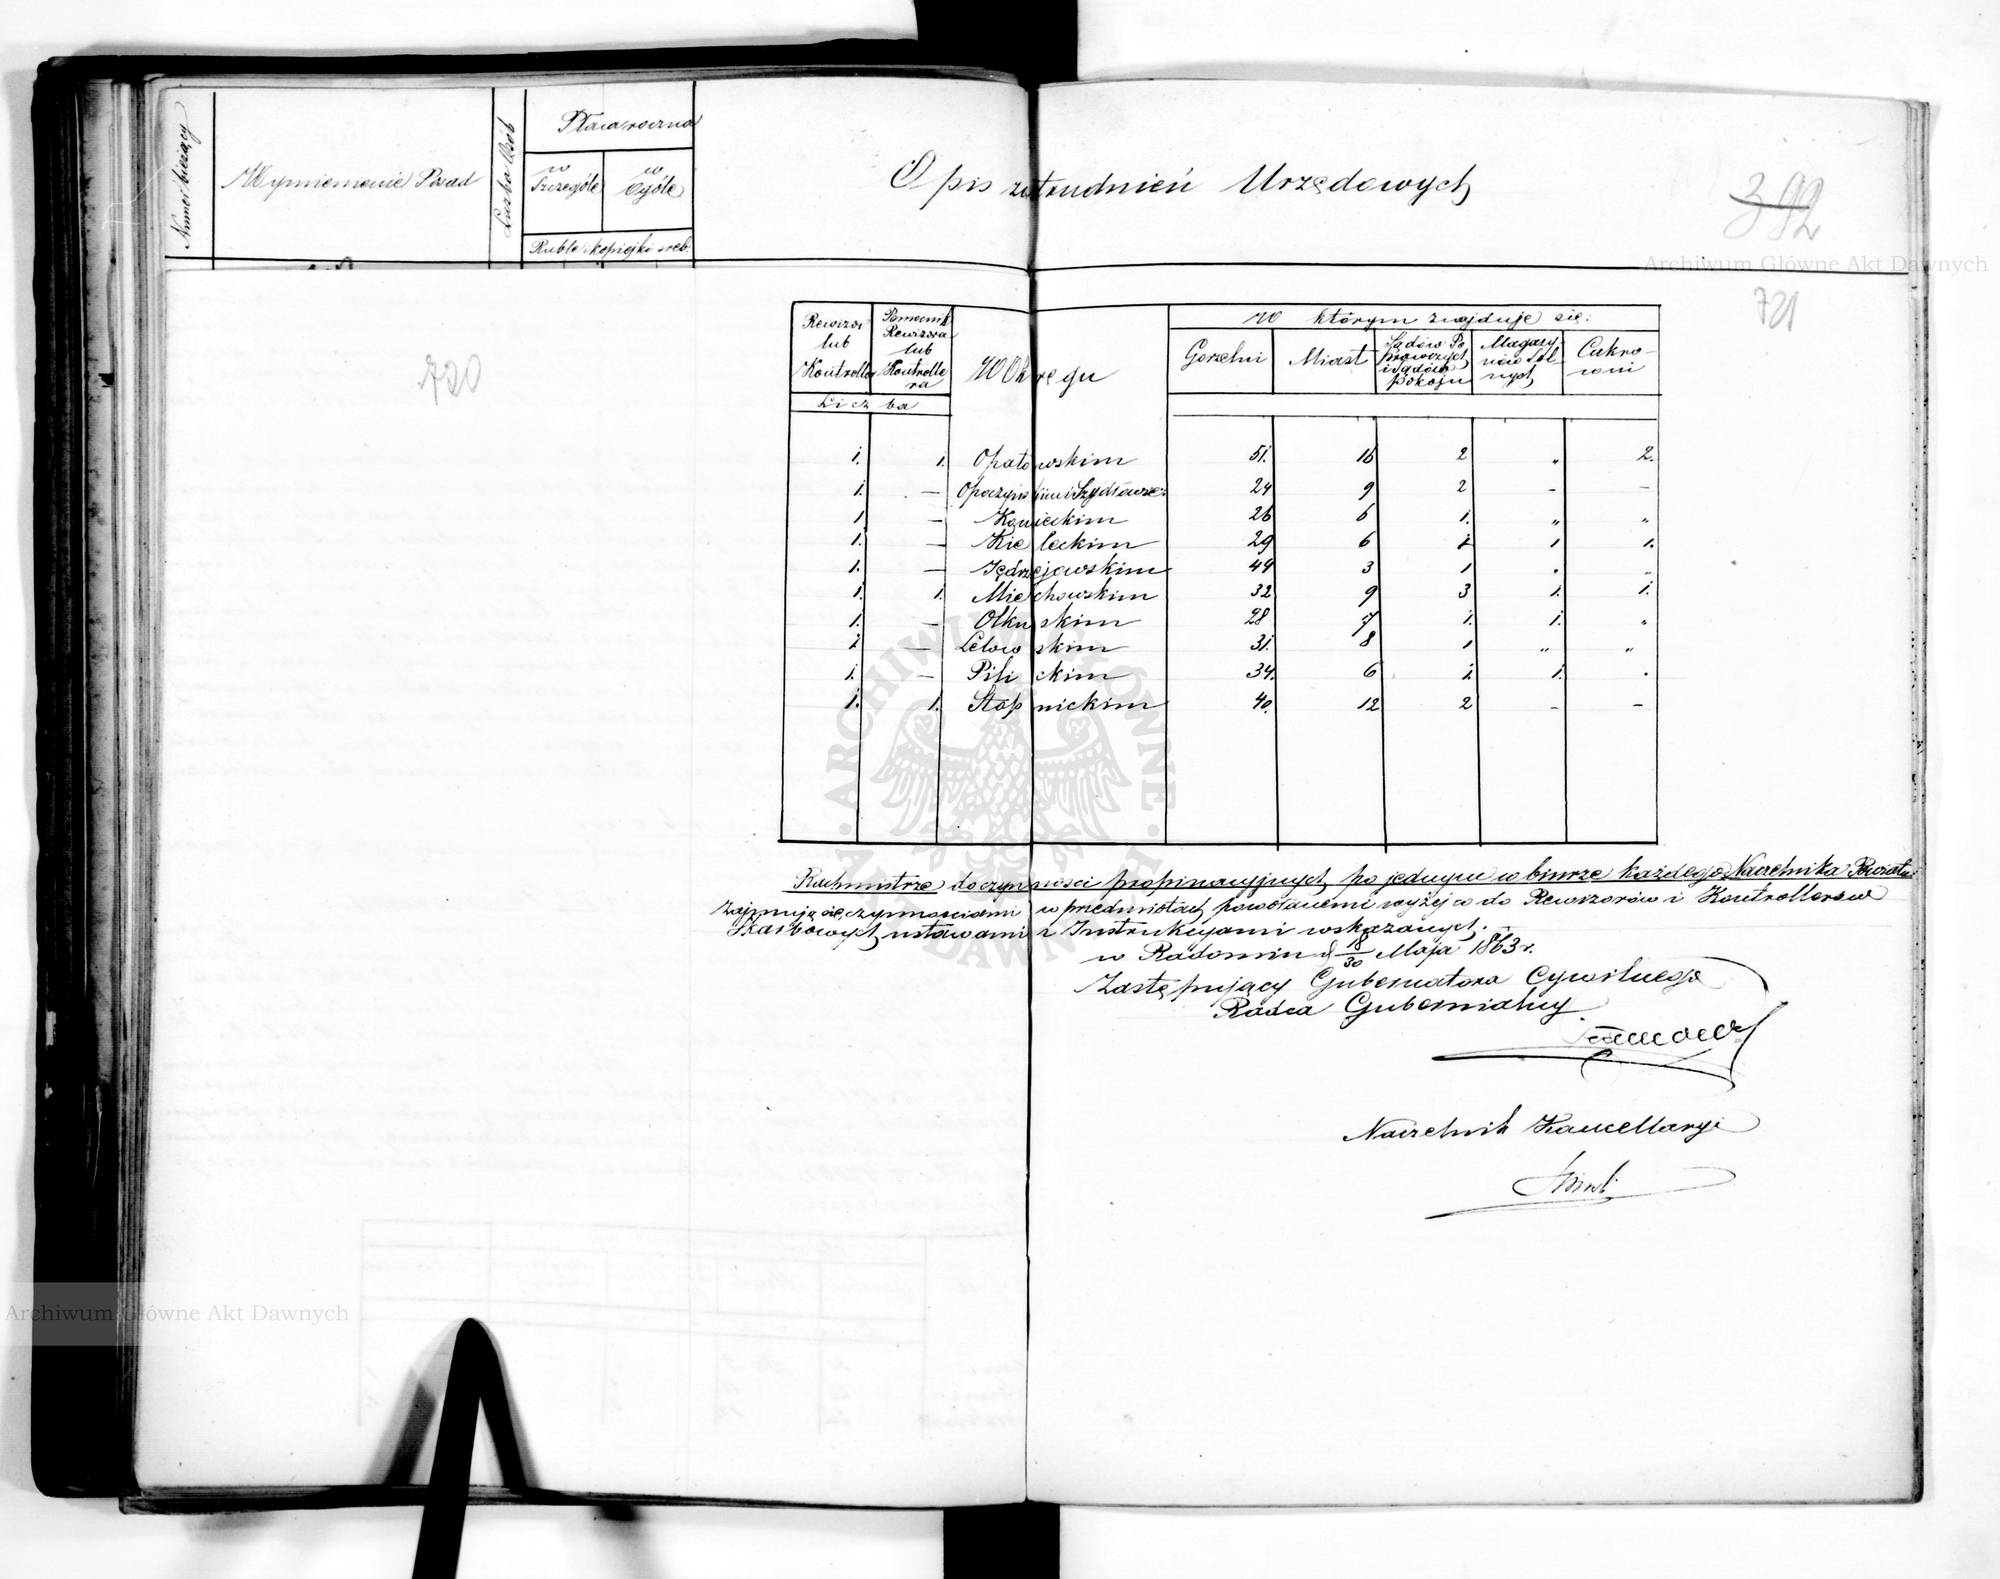 Numer bieżący
Wymienienie Posad
Liczba Osób
Płaca roczna
w Szczególe
w Ogóle
Ruble i kopiejki sreb.
Opis zatrudnień Urzędowych
392
Archiwum Główne Akt Dawnych
721
720
Rewizor lub Kontroller
Pomocnik Rewizora lub Kontrollera
Liczba
W Okręgu
W którym znajduje się:
Gorzelni
Miast
Sądów Poprawczych i Sądów Pokoju
Magazynów Solnych
Cukrowni
1. 1. Opatowskim 51. 16 2 „ 2.
1. — Opoczyńskim i Szydłowec: 24 9 2 - -
1 — Koneckim 26 6 1. „ „
1. — Kieleckim 29 6 1 1 1.
1. — Jędrzejowskim 49 3 1 „ „
1. 1. Miechowskim 32 9 3 1. 1.
1. — Olkuskim 28 7 1. 1. „
1 — Lelowskim 31. 8 1 „ „
1. — Pilickim 34. 6 1. 1. .
1. 1. Stopnickim 40. 12 2 - -
Rachmistrze do czynności propinacyjnych po jednym w biurze każdego Naczelnika Powiatu
zajmują się czynnościami w przedmiotach powołanemi wyżej co do Rewizorów i Kontrollerów
Skarbowych ustawami i Instrukcyami wskazanych.
w Radomiu d 18/30 Maja 1863 r.
Zastępujący Gubernatora Cywilnego
Radca Gubernialny
Naczelnik Kancellaryi
ARCHIWUM GŁÓWNE AKT DAWNYCH
Archiwum Główne Akt Dawnych